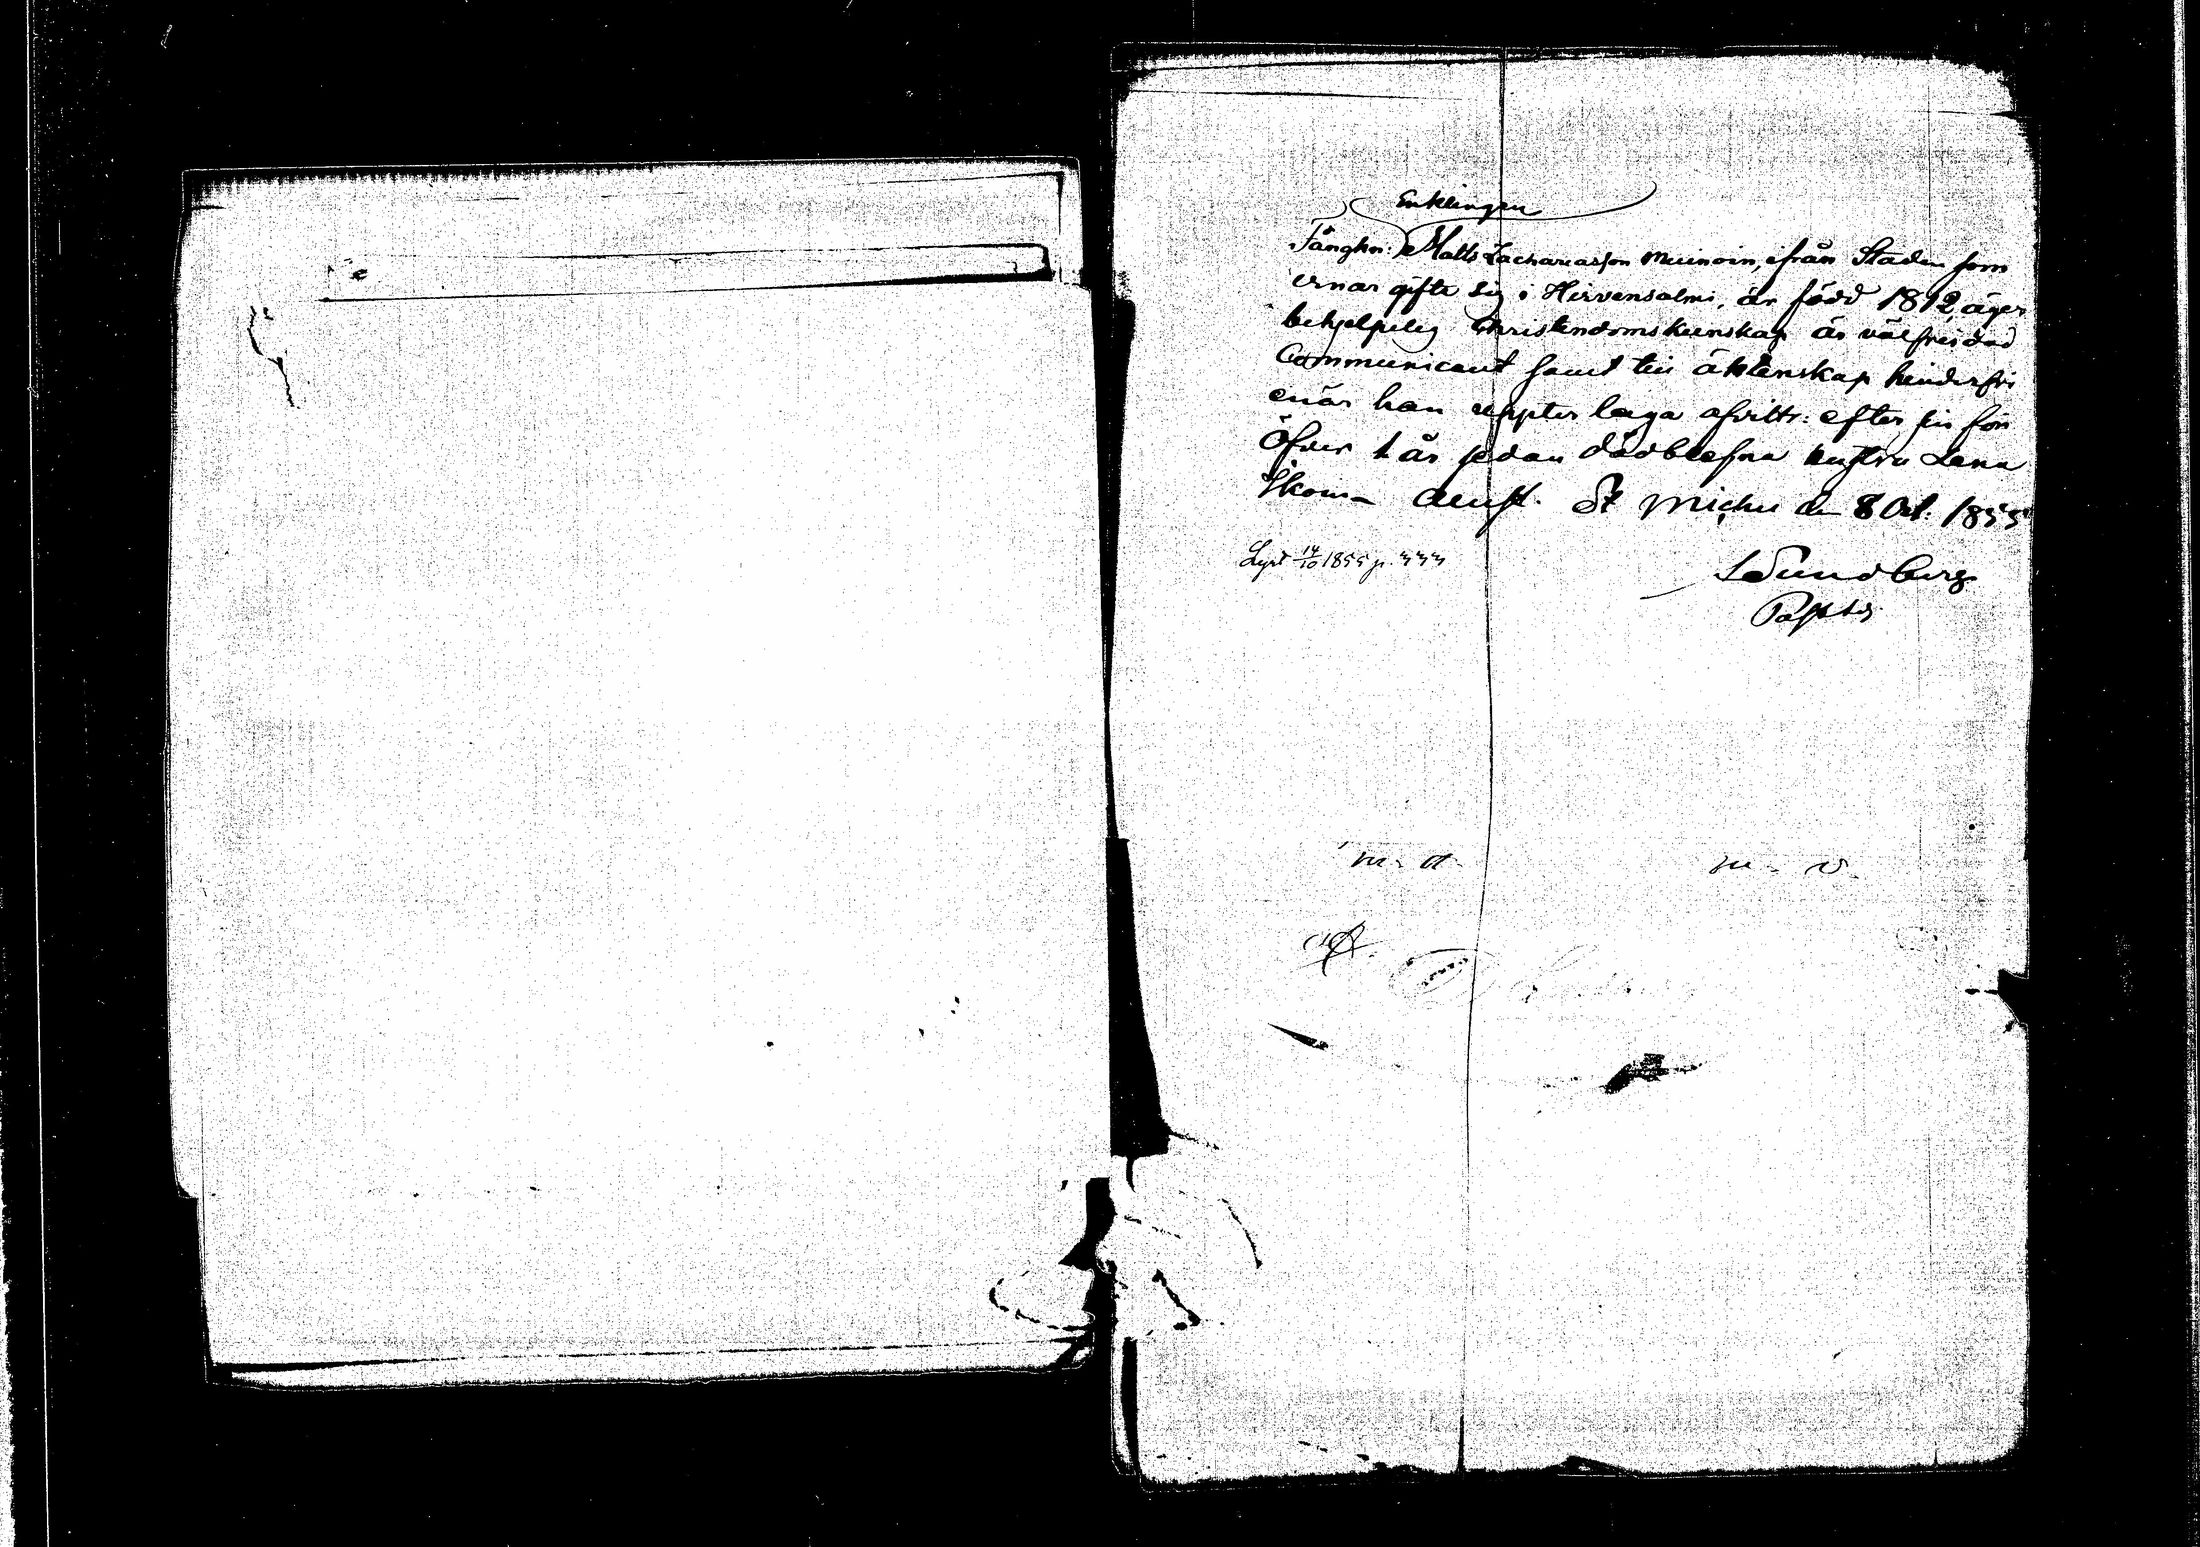 Enklingen
Tånghn: Matts Zachariasson Muinoin, ifrån Staden som
ernar gifta sig i Hirvensalmi, är född 1812, äger
behjelpelig Christendomskunskap är välfrejdad
Communicant samt till äktenskap hinderfri
enär han uppter laga afvittr: efter sin för
Öfver 1 år sedan dödblefna hustru Lena
Ikoin attest. St Michel den 8 Oct: 1855
Lyst 14/10 1855 p.
Sundberg
Past
m. a.
m. v.